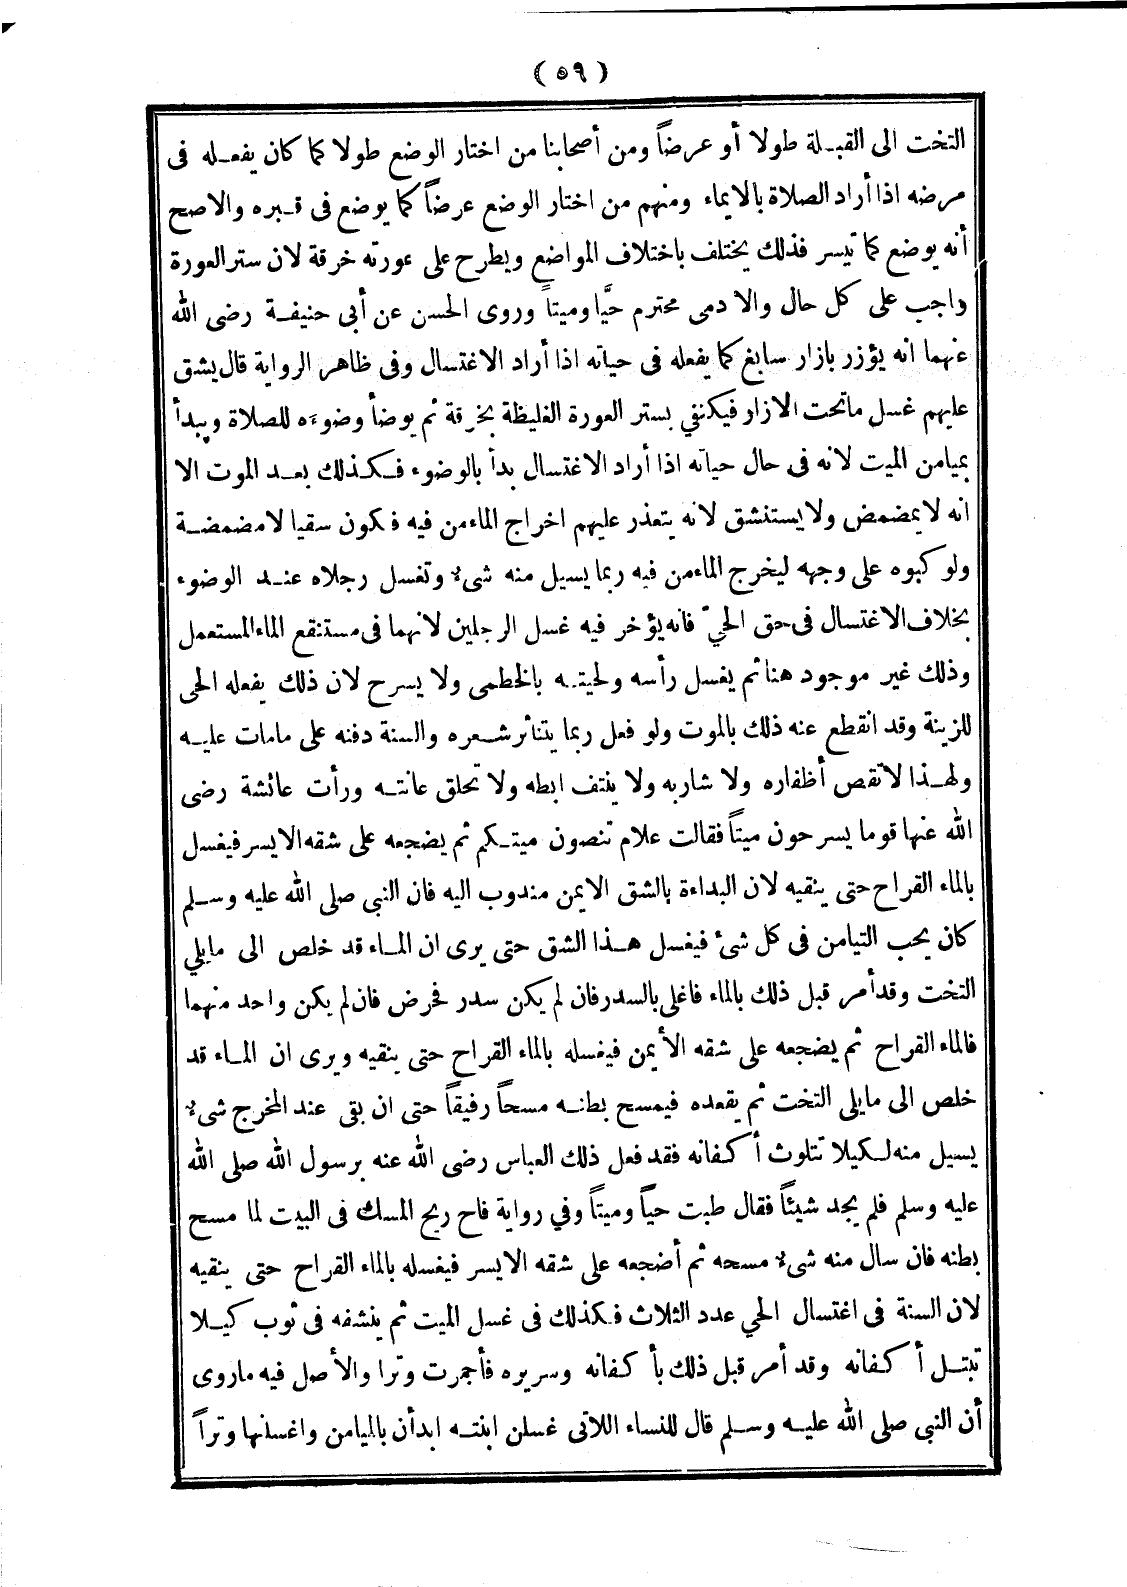 (٥٩)
التخت الى القبلة طولا أو عرضاً ومن أصحابنا من اختار الوضع طولا كما كان يفعله فى
مرضه اذا أراد الصلاة بالايماء ومنهم من اختار الوضع عرضاً كما يوضع فى قبره والاصح
أنه يوضع كما تيسر فذلك يختلف باختلاف المواضع ويطرح على عورته خرقة لان ستر العورة
واجب على كل حال والا دمى محترم حيًّا وميتاً وروى الحسن عن أبى حنيفة رضى الله
عنهما انه يؤزر بازار سابغ كما يفعله فى حياته اذا أراد الاغتسال وفى ظاهر الرواية قال يشق
عليهم غسل ماتحت الازار فيكتفي بستر العورة الغليظة بخرقة ثم يوضأ وضوءه للصلاة ويبدأ
بميامن الميت لانه فى حال حياته اذا أراد الاغتسال بدأ بالوضوء فكذلك بعد الموت الا
انه لايمضمض ولا يستنشق لانه يتعذر عليهم اخراج الماء من فيه فيكون سقيا لا مضمضة
ولو كبوه على وجهه ليخرج الماء من فيه ربما يسيل منه شىء وتغسل رجلاه عند الوضوء
بخلاف الاغتسال فى حق الحيّ فانه يؤخر فيه غسل الرجلين لانهما فى مستنقع الماء المستعمل
وذلك غير موجود هنا ثم يغسل رأسه ولحيته بالخطمى ولا يسرح لان ذلك يفعله الحى
للزينة وقد انقطع عنه ذلك بالموت ولو فعل ربما يتناثر شعره والسنة دفنه على مامات عليه
ولهذا لاتقص أظفاره ولا شاربه ولا ينتف ابطه ولا تحلق عانته ورأت عائشة رضى
الله عنها قوما يسرحون ميتاً فقالت علام تنصون ميتكم ثم يضجعه على شقه الايسر فيغسل
بالماء القراح حتى ينقيه لان البداءة بالشق الايمن مندوب اليه فان النبي صلى الله عليه وسلم
كان يحب التيامن فى كل شئ فيغسل هذا الشق حتى يرى ان الماء قد خلص الى مايلي
التخت وقد أمر قبل ذلك بالماء فاغلى بالسدر فان لم يكن سدر فحرض فان لم يكن واحد منهما
فالماء القراح ثم يضجعه على شقه الأيمن فيغسله بالماء القراح حتى ينقيه ويرى ان الماء قد
خلص الى مايلى التخت ثم يقعده فيمسح بطنه مسحاً رفيقاً حتى ان بقى عند المخرج شىء
يسيل منه لكيلا تتلوث أكفانه فقد فعل ذلك العباس رضى الله عنه برسول الله صلى الله
عليه وسلم فلم يجد شيئاً فقال طبت حياً وميتاً وفي رواية فاح ريح المسك فى البيت لما مسح
بطنه فان سال منه شىء مسحه ثم أضجعه على شقه الايسر فيغسله بالماء القراح حتى ينقيه
لان السنة فى اغتسال الحي عدد الثلاث فكذلك فى غسل الميت ثم ينشفه فى ثوب كيلا
تبتل أكفانه وقد أمر قبل ذلك بأكفانه وسريره فأجمرت وترا والأصل فيه ماروى
أن النبي صلى الله عليه وسلم قال للنساء اللاتى غسلن ابنته ابدأن بالميامن واغسلنها وتراً